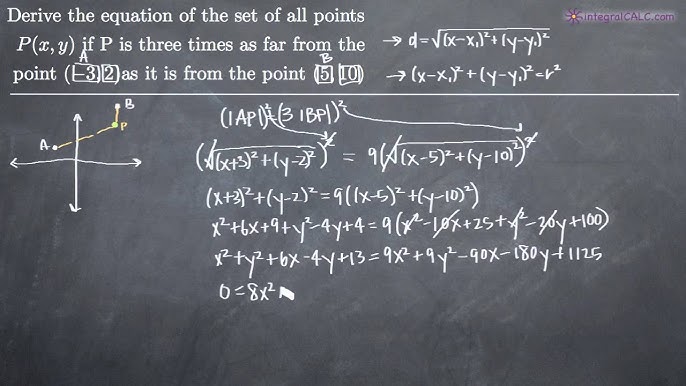 integralCALC.com
Derive the equation of the set of all points
P(x, y) if P is three times as far from the
point (−3, 2) as it is from the point (5, 10)
A
B
→ d = √((x-x₁)² + (y-y₁)²)
→ (x-x₁)² + (y-y₁)² = r²
B
P
A
(|AP|)² = (3|BP|)²
(√((x+3)² + (y-2)²))² = 9(√((x-5)² + (y-10)²))²
(x+3)² + (y-2)² = 9((x-5)² + (y-10)²)
x² + 6x + 9 + y² - 4y + 4 = 9(x² - 10x + 25 + y² - 20y + 100)
x² + y² + 6x - 4y + 13 = 9x² + 9y² - 90x - 180y + 1125
0 = 8x²